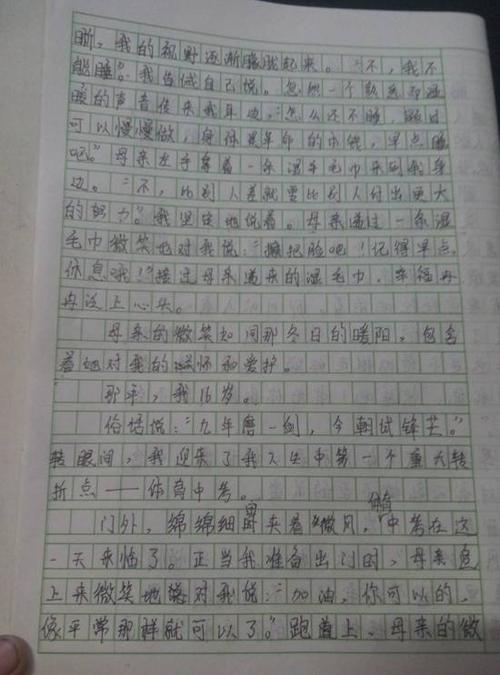 晰，我的视野逐渐朦胧起来。“不，我不
能睡”。我告诫自己说。忽然一个熟悉却温
暖的声音传来我耳边：“怎么还不睡，题目
可以慢慢做，身体是革命的本钱，早点睡
吧。”母亲左手拿着一条湿毛巾来到我身
边。“不，比别人差就要比别人付出更大
的努力”。我坚定地说着。母亲递过一条湿
毛巾微笑地对我说：“擦把脸吧！记得早点
休息哦！”接过母亲递来的湿毛巾，幸福再
再没上心头。
母亲的微笑如同那冬日的暖阳，包含
着她对我的关怀和爱护。
那年，我16岁。
俗话说：“九年磨一剑，今朝试锋芒。”
转眼间，我迎来了我人生中第一个重大转
折点——体育中考。
门外，绵绵细雨夹着微风，体育中考在这
一天来临了。正当我准备出门时，母亲急
上来微笑地对我说：“加油，你可以的，
像平常那样就可以了。”跑道上，母亲的微